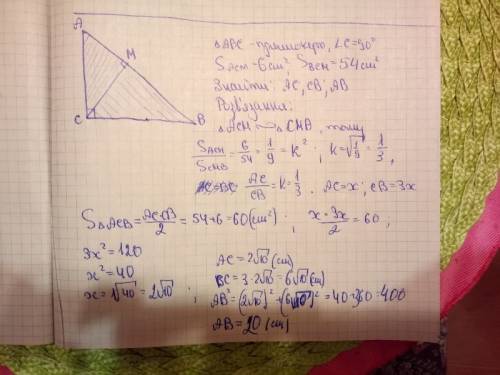 A
M
C
B
△ABC - прямокутн, ∠C=90°
S ACM - 6 cm², S BCM = 54 cm²
Знайти: AC, CB, AB
Розв'язання:
△ACM ∾ △CMB, тому
S ACM / S CMB = 6/54 = 1/9 = k² ; k = √1/9 = 1/3 ,
AC/CB = k = 1/3 . AC = x ; CB = 3x
S △ACB = AC·CB/2 = 54+6 = 60 (cm²) ; x·3x/2 = 60 ,
3x² = 120
x² = 40
x = √40 = 2√10 ;
AC = 2√10 (cm)
BC = 3·2√10 = 6√10 (cm)
AB² = (2√10)² + (6√10)² = 40+360 = 400
AB = 20 (cm)